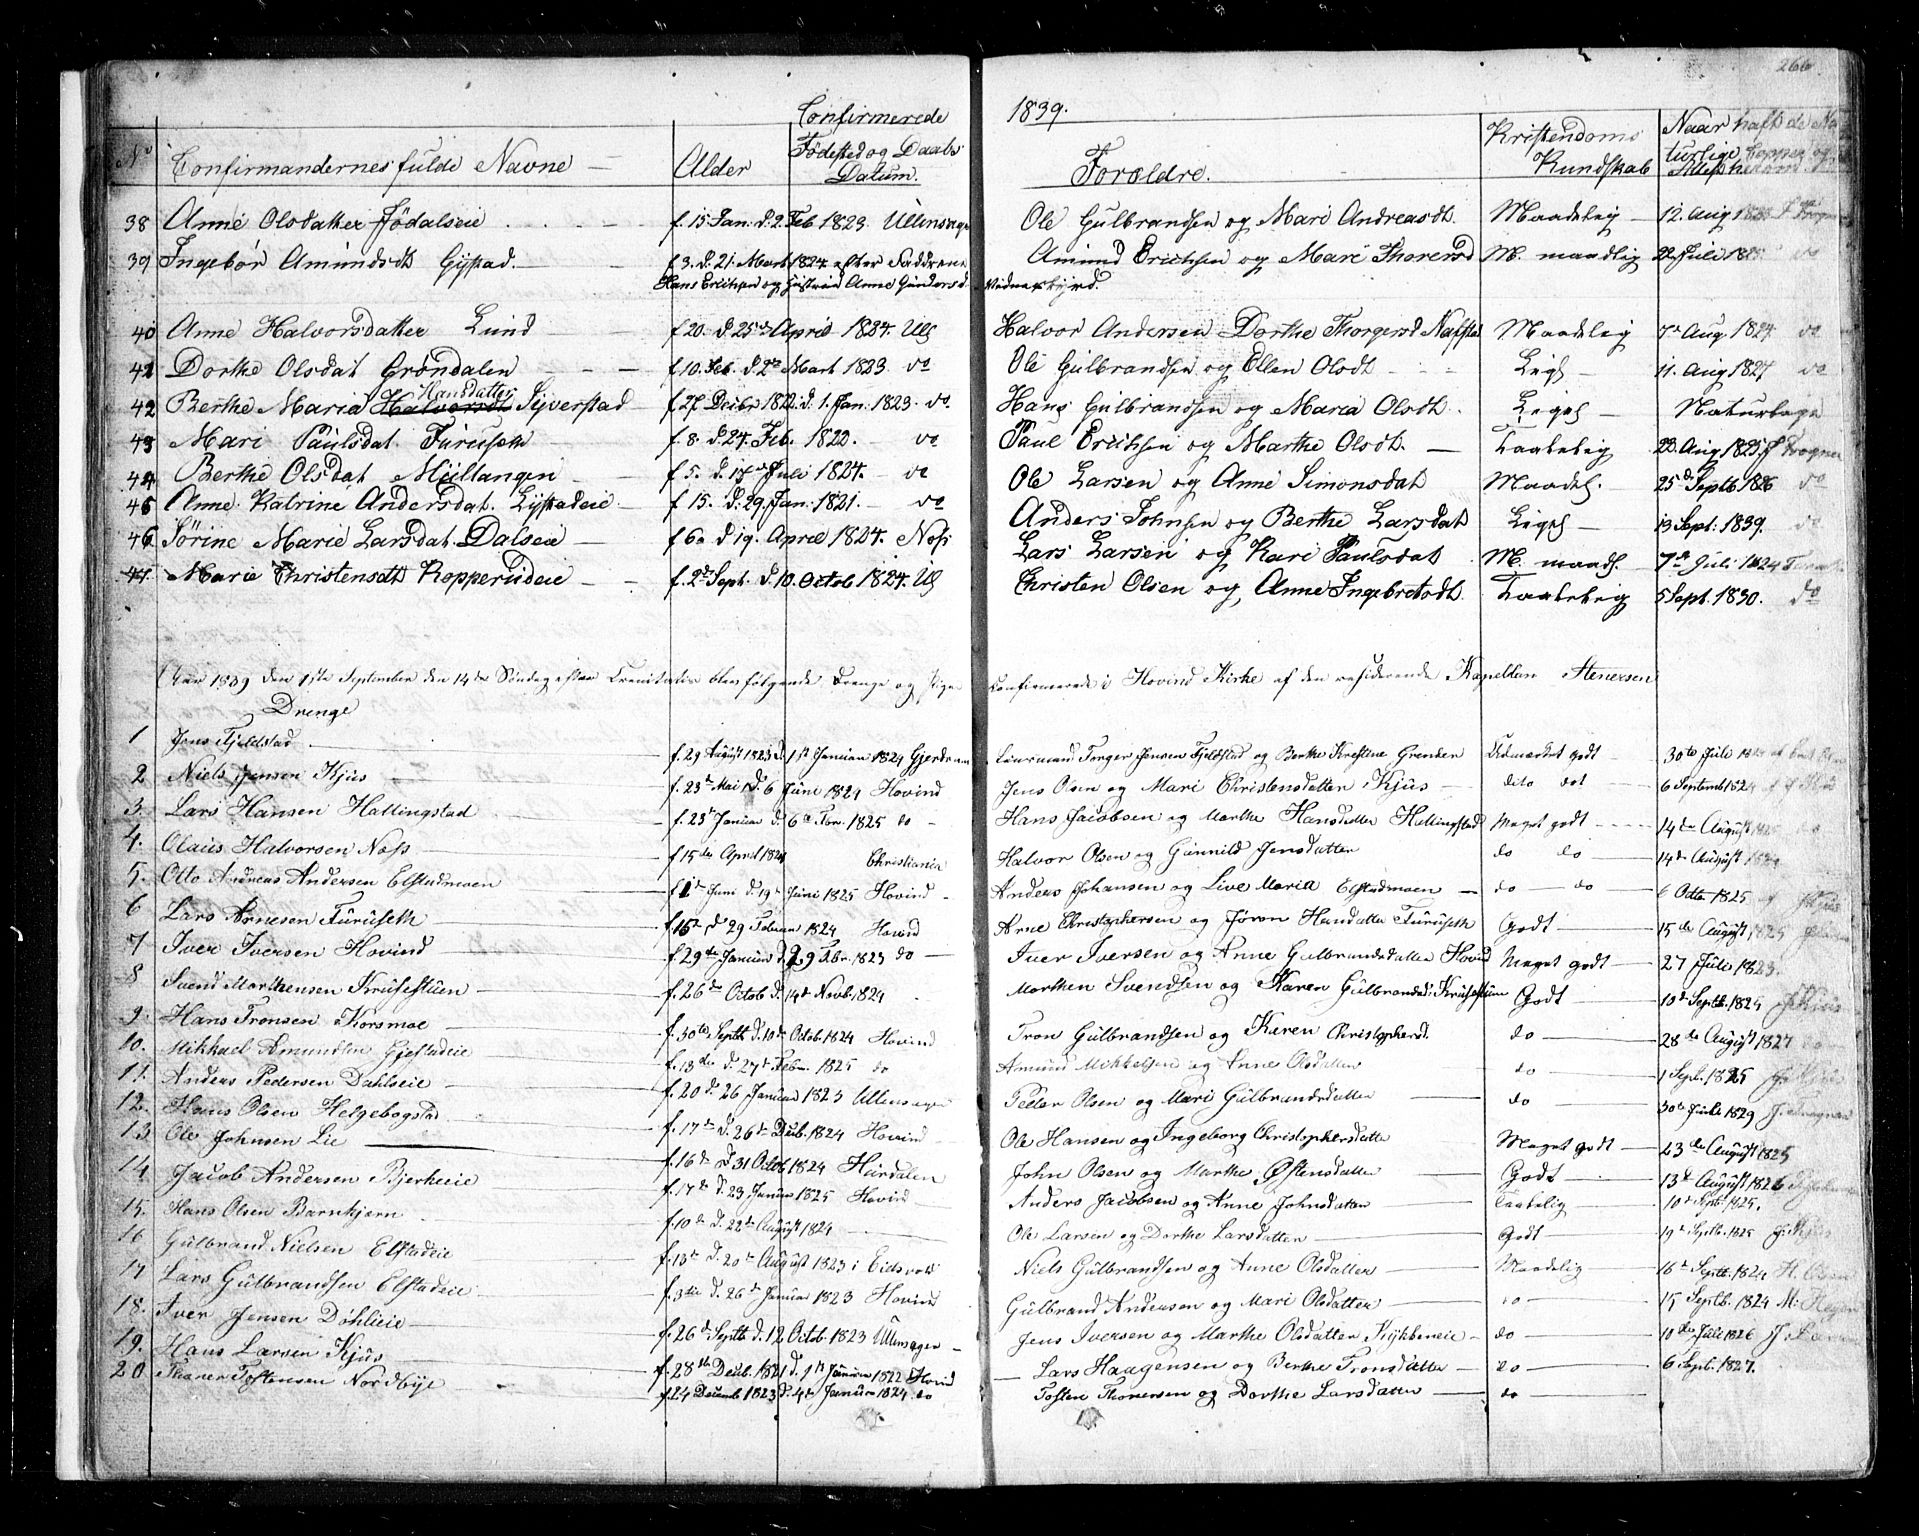 266
Confirmerede 1839.
No Confirmandernes fulde Navne Alder Fødested og Daabs Datum. Forældre. Kristendoms Kundskab Naar hafte de Na turlige Copper og
38 Anne Olsdatter Födalseie f. 15 Jan. d. 2. Feb 1823. Ullensager Ole Gulbrandsen og Mari Andreasdt. Maadelig 12. Aug
39 Ingebor Amundsdt Gystad. f. 3. d. 21. Mart 1824 efter Faddrene Amund Erichsen og Mari Thorersd M. maadlig 22 Juli do
Hans Erichsen og Hustrue Anne Gundersd Vidnesbyrd.
40 Anne Halvorsdatter Lund f 20. d. 25de April 1824. Ull Halvor Andersen Dorthe Thorgersd Nafstad Maadelig 7de Aug. 1824. do
41 Dorthe Olsdat Gröndalen f 10. Feb. d. 2den Mart 1823. do Ole Gulbrandsen og Ellen Olsdt Ligel 11. Aug 1827 do
42 Berthe Maria Halvorsdt Hansdatter Syverstad f 27 Decbr 1822. d. 1. Jan. 1823. do. Hans Gulbrandsen og Maria Olsdt. Ligel Naturlige
43 Mari Paulsdat Furuseth f. 8. d. 24. Feb. 1822. do Paul Erichsen og Marthe Olsdt. Taalelig 22. Aug 1825
44 Berthe Olsdat Mullangen f 5. d. 18de Juli 1824. do Ole Larsen og Anne Simonsdat Maadel. 25de Septb 1826 do
45 Anne Katrine Andersdat. Lystadeie f 15. d. 29. Jan. 1821. do Anders Johnsen og Berthe Larsdat Ligel 13 Sept. 1839. do
46 Sørine Marie Larsdat. Dalseie f 6. d 19. April 1824. Næs Lars Larsen og Kari Paulsdat M. maadl. 7de Juli 1824
47 Marie Christensdt Kopperudeie f. 2de Sept. d. 10. Octob 1824. Ull Christen Olsen og Anne Ingebretsdt. Taalelig 5 Sept. 1830. do
Aar 1839 den 1ste September den 14de Söndag efter Trenitatis blev følgende Drenge og Piger Confirmerede i Hovind Kirke af den residerende Kapellan Stenersen
Drenge
1 Jens Fjeldstad f. 29 August 1823 d. 1st Januar 1824 Gjerdrum Lensmand Torger Jensen Fjeldstad og Berthe Kirstine Grender Udmærket godt 30te Juli
2 Niels Jensen Kjus f. 23de Mai d. 6 Juni 1824 Hovind Jens Olsen og Mari Christensdatter Kjus dito dot 6 Septemb 1824
3. Lars Hansen Hallingstad f. 23de Januar d. 6te Febr. 1825 do Hans Jacobsen og Marthe Hansdatter Hallingstad Meget godt 14de August do
4. Olaus Halvorsen Næss f 15de April 1824 Christiania Halvor Olsen og Gunnild Jensdatter do do 14de August
5. Otto Andreas Andersen Elstadmoen f 1de Juni d. 19de Juni 1825 Hovind Anders Johansen og Live Maria Elstadmoen do do 6 Octbr 1825
6 Lars Arnesen Furuseth f 15de d 29 Februar 1824 Hovind Arne Christophersen og Jøron Hansdatter Furuseth Godt 15de August 1825
7 Iver Iversen Hovind f. 29de Januar d. 9 Febr. 1823 do Iver Iversen og Anne Gulbrandsdatter Hovind Meget godt 27 Juli 1823.
8 Svend Marthensen Krusestuen f. 26de Octob d. 14de Novb. 1824 Morthen Svendsen og Karen Gulbrandsd: Krusestuen Godt 10de Septb. 1824
9. Hans Tronsen Korsmoe f. 30te Septb d. 10de Octob. 1824 Hovind Tron Gulbrandsen og Karen Christophersd. do 28de August 1827
10. Mikkael Amundsen Gjestadeie f. 13de d. 27de Febr. 1825 do Amund Mikkelsen og Anne Olsdatter do 1 Sept. 1825
11. Anders Pedersen Dahlseie f. 20 d. 26 Januar 1823 Ullensager Peder Olsen og Mari Gulbrandsdatter do 30te Juli 1829
12. Hans Olsen Helgebogstad f. 17de d. 26de Decb. 1824 Hovind Ole Hansen og Ingeborg Christophersdatter Meget godt 23de August 1825
13 Ole Johnsen Lie f. 16de d 31 Octob 1824 Hurdalen John Olsen og Marthe Østensdatter Godt 13de August 1826
14 Jacob Andersen Bjerkeeie f. 17de d. 23 Januar 1825 Hovind Anders Jacobsen og Anne Johnsdatter Taalelig 10de Septb 1825.
15. Hans Olsen Barnkjern f. 10de d. 22de August 1824 Ole Larsen og Dorthe Larsdatter Godt 19de Septb. 1825
16 Gulbrand Nielsen Elstadeie f. 13de d. 20de August 1823 i Eidsvold Niels Gulbrandsen og Anne Olsdatter Maadelig 16de Septb. 1824
17 Lars Gulbrandsen Elstadeie f. 3die d. 26de Januar 1823 Hovind Gulbrand Andersen og Mari Olsdatter do 15 Septb. 1824
18. Iver Jensen Döhlieie f. 26de Septb d. 12 Octob. 1823 Ullensager Jens Iversen og Marthe Olsdatter Kykkeneie do 10de Juli 1826
19. Hans Larsen Kjus f. 28de Decb. 1821 d. 1st Januar 1822 Hovind Lars Haagensen og Berthe Tronsdatter do 6 Septb. 1827.
20 Thorer Tostensen Nordbye f 24 Decemb 1823 d. 4de Januar 1824. do Tosten Thoresen og Dorthe Larsdatter do